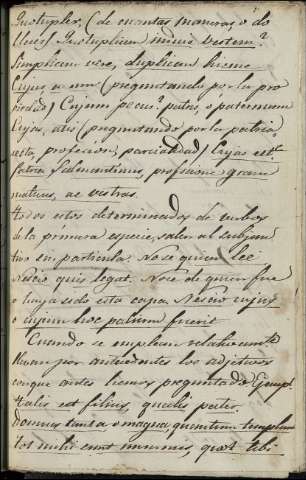 Quotuplex, (de cuantas maneras, o dos
veces) Quotuplicem induis vestem?
Simplicem vere, duplicem hieme
Cujus a um (preguntando por la pro
piedad) Cujum pecus? patris, o paternum
Cujas, atis (preguntando por la patria,
secta, profecion, parcialidad) Cujas est?
patria Salmantinus, profesione gram
maticus, ac vestras.
todos estos determinados de verbos
de la primera especie, salen al subjun
tivo sin particula. No se quien lee
Nescio quis legat. No se de quien fue
o haya sido esta capa Nescio cujus
o cujum hoc palium fuerit
Cuando se emplean relativamente
llevan por antecedentes los adjetivos
con que antes hemos preguntado Exemp.
talis est filius, qualis pater.
Domus tanta o magna, quantum templum
tot mihi sunt nummi, quot tibi